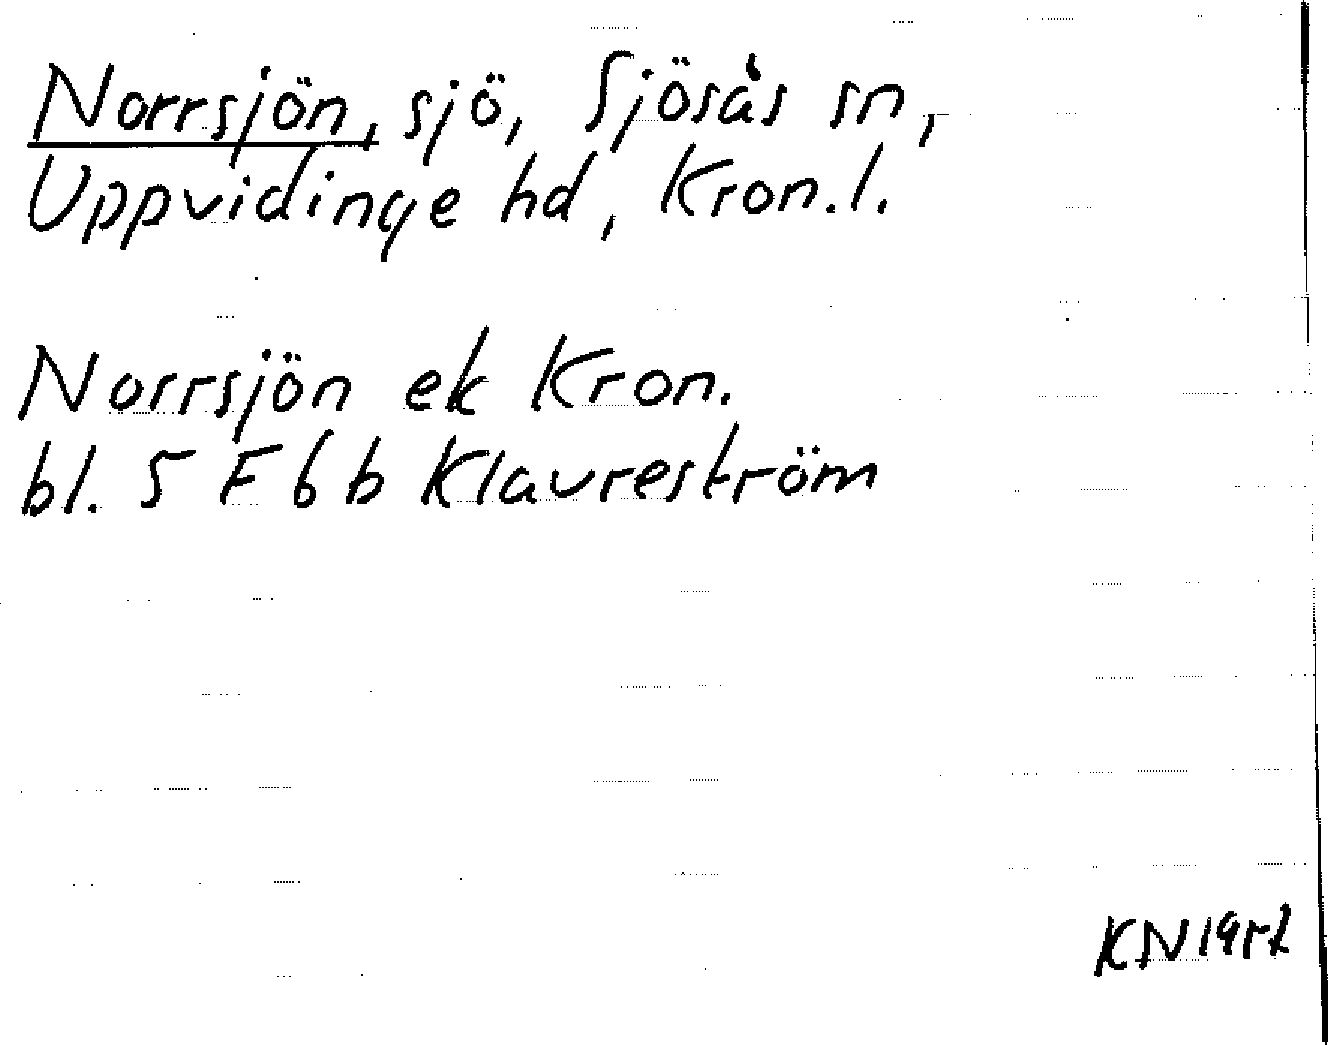 Norrsjön, sjö, Sjösås sn,
Uppvidinge hd, Kron.l.
Norrsjön ek Kron.
bl. 5 F 6 b Klavreström
KN